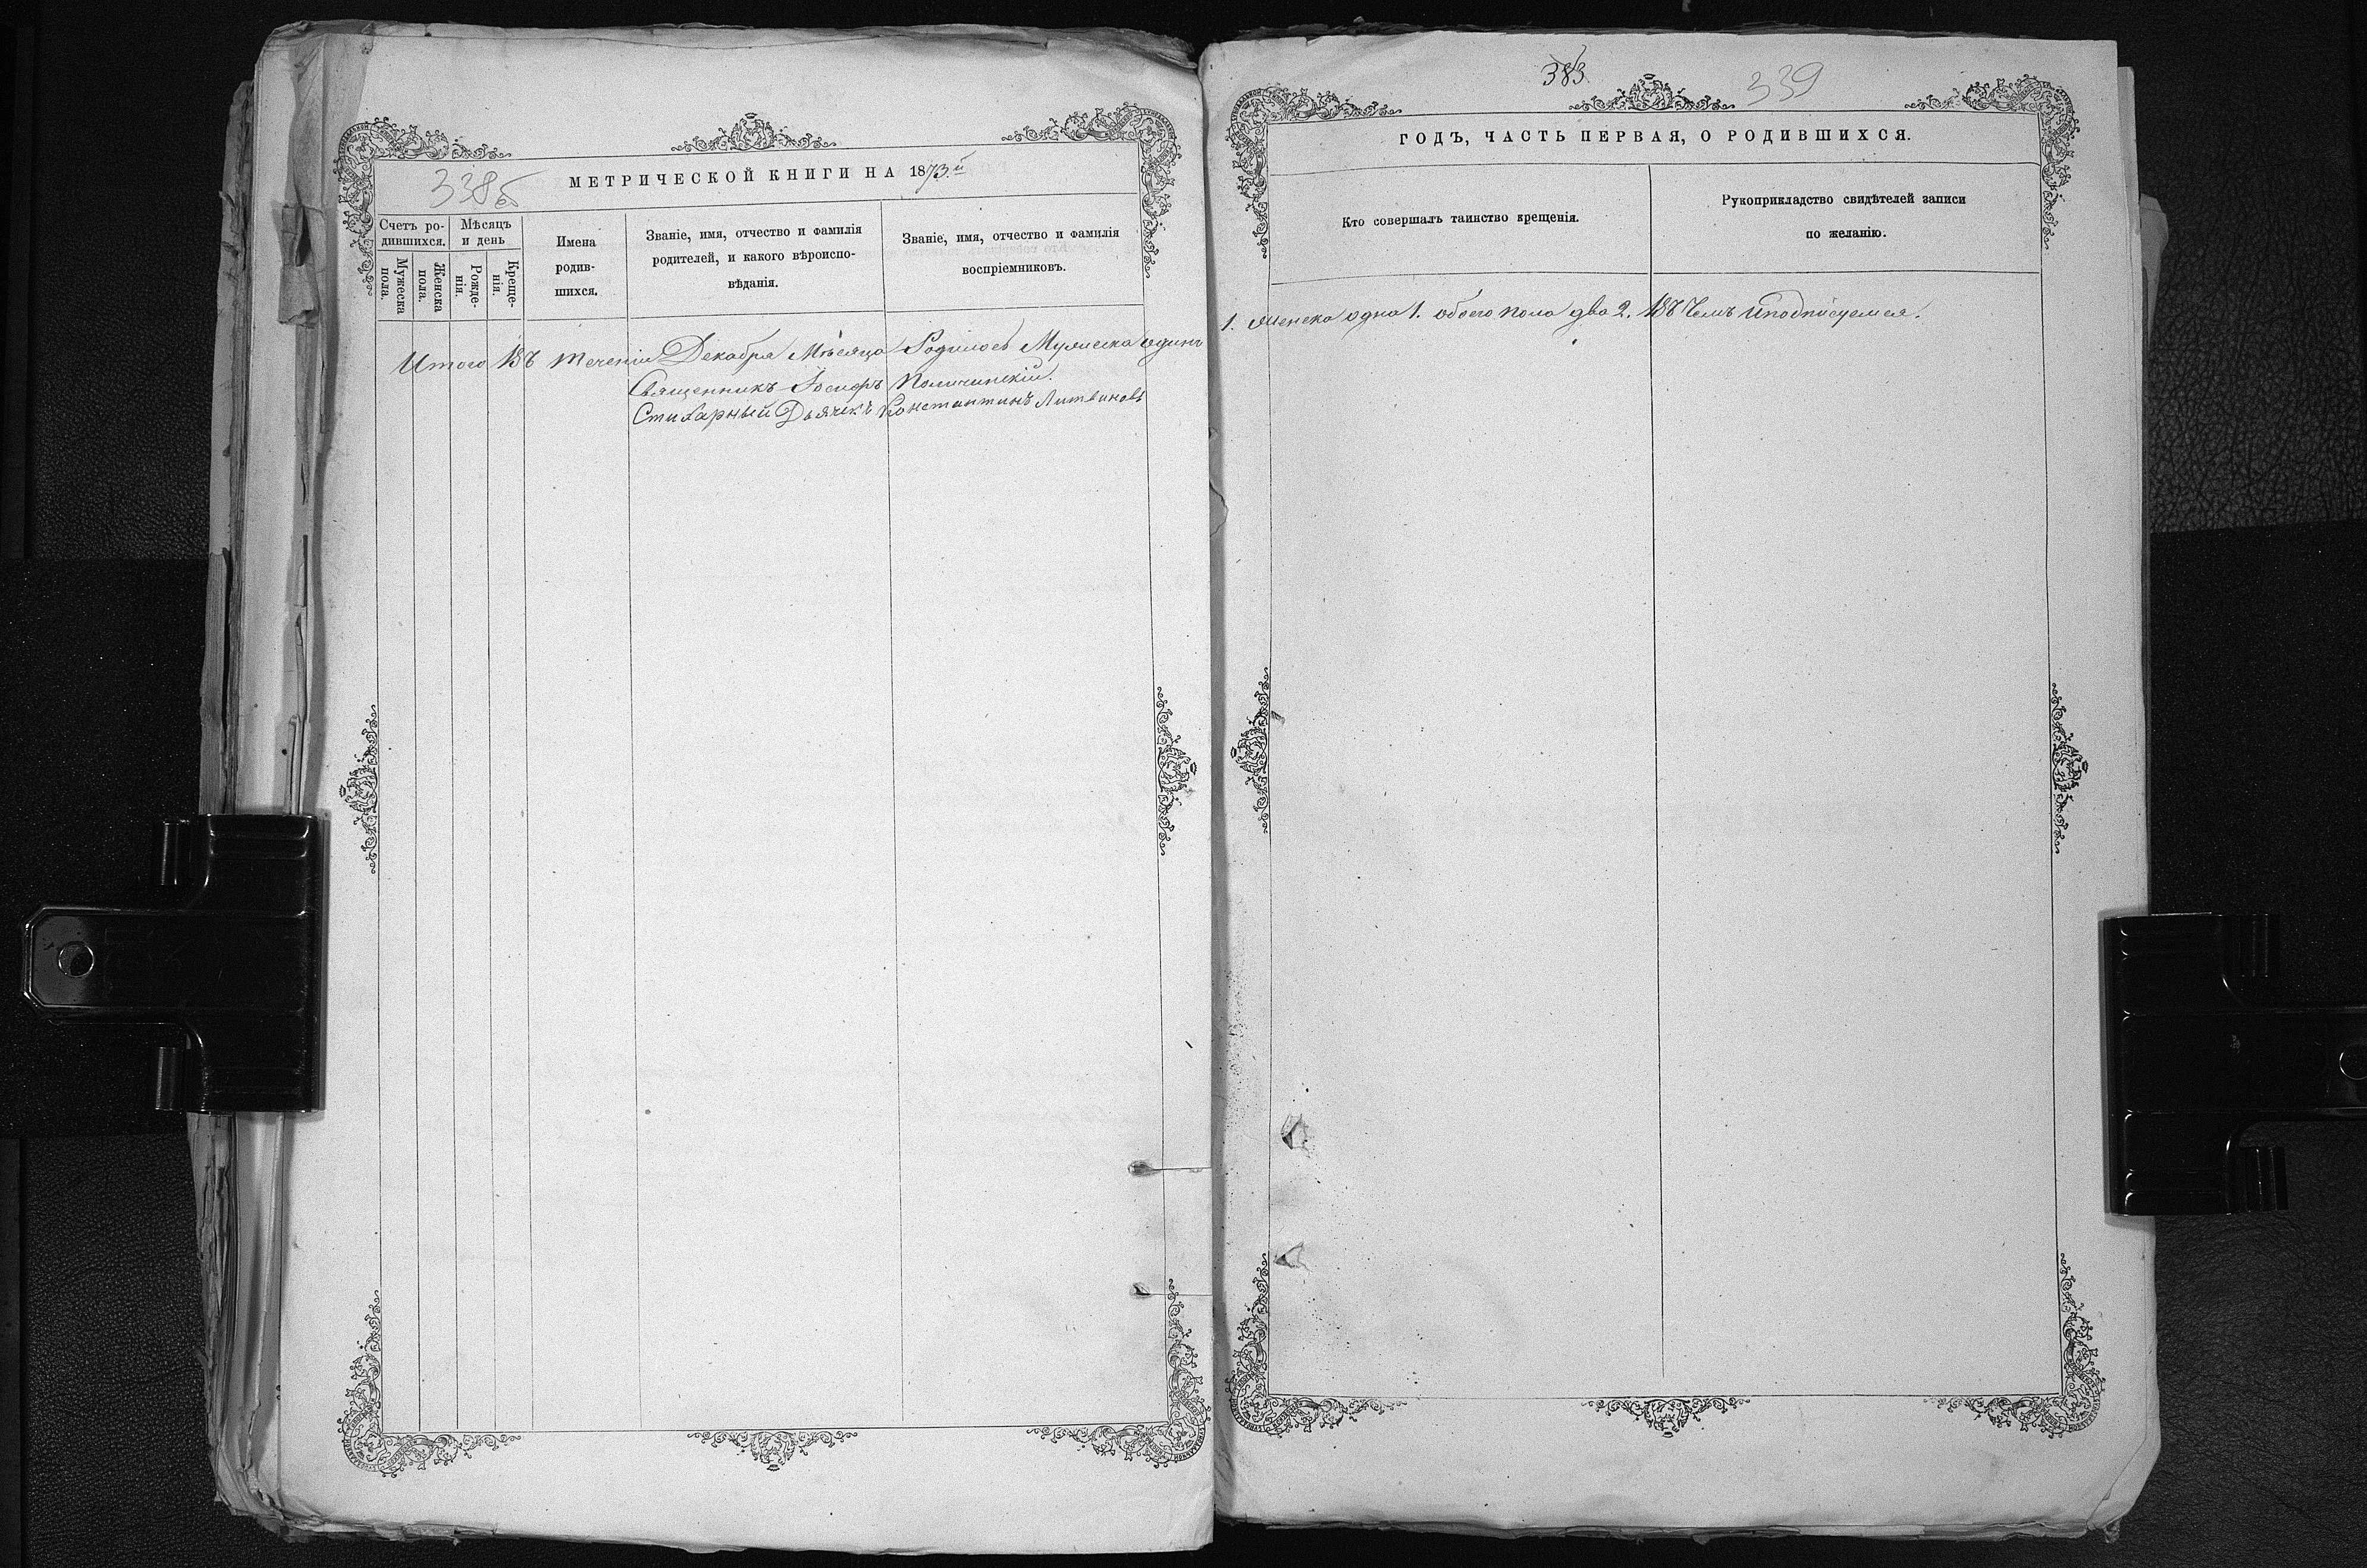 338б
МЕТРИЧЕСКОЙ КНИГИ НА 1873.й
Счетъ ро-
дившихся.
Мѣсяцъ
и день
Мужеска
пола.
Женска
пола.
Рожде-
нія.
Креще-
нія.
Имена
родив-
шихся.
Званіе, имя, отчество и фамилія
родителей, и какого вѣроиспо-
вѣданія.
Званіе, имя, отчество и фамилія
воспріемниковъ.
Итого Въ теченіи Декабря Мѣсяца Родилось Мужеска одинъ
Священникъ Іосифъ
Стихарный Дьячекъ Константинъ Литвиновъ
383
339
ГОДЪ, ЧАСТЬ ПЕРВАЯ, О РОДИВШИХСЯ.
Кто совершалъ таинство крещенія.
Рукоприкладство свидѣтелей записи
по желанію.
1. Женска одна 1. обоего пола два 2. Въ Чемъ и подписуемся.